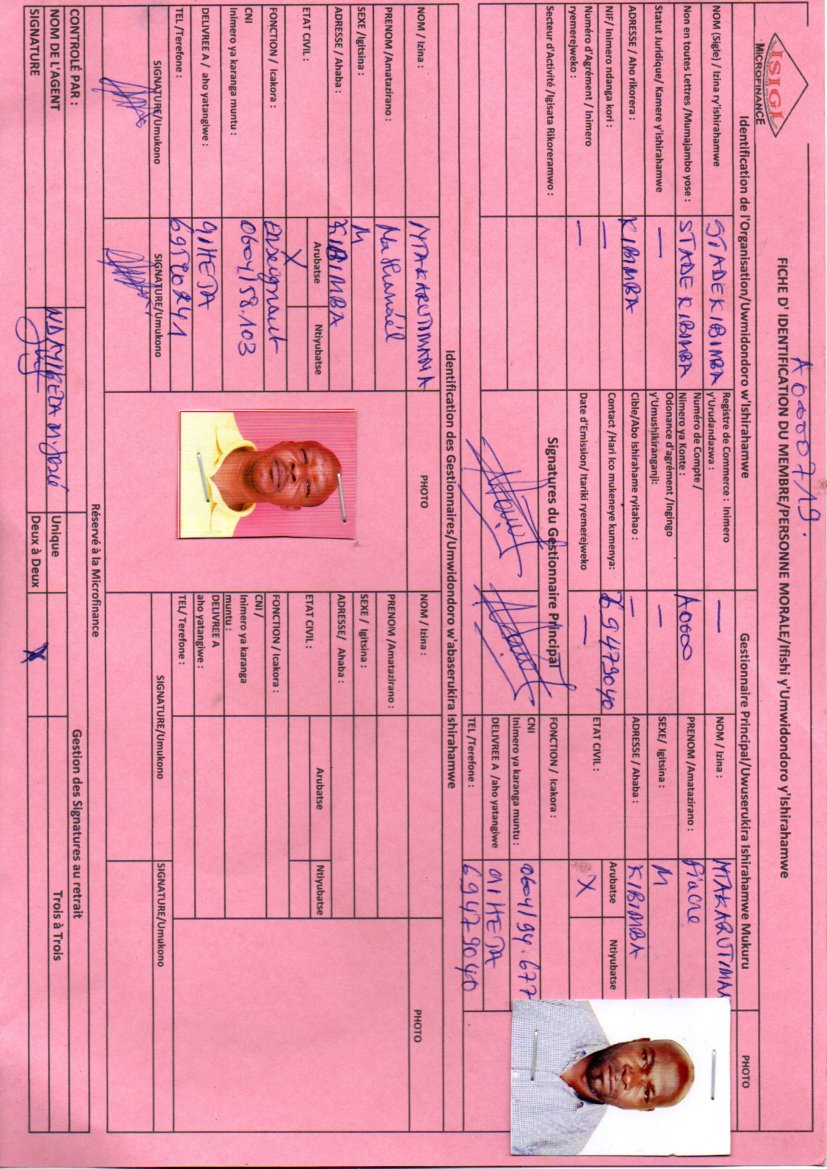 ISIGI
MICROFINANCE
A00007/19.
FICHE D' IDENTIFICATION DU MEMBRE/PERSONNE MORALE/Ifishi y'Umwidondoro y'Ishirahamwe
Identification de l'Organisation/Uwmidondoro w'Ishirahamwe
Gestionnaire Principal/Uwuserukira Ishirahamwe Mukuru
PHOTO
NOM (Sigle) / Izina ry'ishirahamwe
STADE KIBIMBA
Registre de Commerce : Inimero y'Urudandazwa :
—
NOM / Izina :
NTAKARUTIMAN
Non en toutes Lettres /Mumajambo yose :
STADE KIBIMBA
Numéro de Compte / Nimero ya Konte :
A0000
PRENOM /Amatazirano :
Fiacre
Statut Juridique/ Kamere y'ishirahamwe
—
Odonance d'agrément /Ingingo y'Umushikiranganji:
—
SEXE/ Igitsina :
M
ADRESSE / Aho rikorera :
KIBIMBA
Cible/Abo Ishirahame ryitaho :
—
ADRESSE / Ahaba :
KIBIMBA
NIF/ Inimero ndanga kori :
—
Contact /Hari Ico mukeneye kumenya:
69479040
ETAT CIVIL :
Arubatse
Ntiyubatse
X
Numéro d'Agrément / Inimero ryemerejweko :
—
Date d'Emission/ Itariki ryemerejweko
—
Secteur d'Activité /Igisata Rikoreramwo :
Signatures du Gestionnaire Principal
FONCTION / Icakora :
CNI
Inimero ya karanga muntu :
0604/94.677
DELIVREE A /aho yatangiwe
GIHETA
TEL /Terefone :
69479040
Identification des Gestionnaires/Umwidondoro w'abaserukira Ishirahamwe
NOM / Izina :
NTAKARUTIMANA
PHOTO
NOM / Izina :
PHOTO
PRENOM /Amatazirano :
Nathanaël
PRENOM /Amatazirano :
SEXE /Igitsina :
M
SEXE / Igitsina :
ADRESSE / Ahaba :
KIBIMBA
ADRESSE/ Ahaba :
ETAT CIVIL :
Arubatse
Ntiyubatse
X
ETAT CIVIL :
Arubatse
Ntiyubatse
FONCTION / Icakora :
Enseignant
FONCTION / Icakora :
CNI
Inimero ya karanga muntu :
0604/58.103
CNI /
Inimero ya karanga muntu :
DELIVREE A / aho yatangiwe :
GIHETA
DELIVREE A
aho yatangiwe :
TEL /Terefone :
69520241
TEL/ Terefone :
SIGNATURE/Umukono
SIGNATURE/Umukono
SIGNATURE/Umukono
SIGNATURE/Umukono
Réservé à la Microfinance
CONTROLE PAR :
Gestion des Signatures au retrait
NOM DE L'AGENT
Unique
Trois à Trois
SIGNATURE
Deux à Deux
X